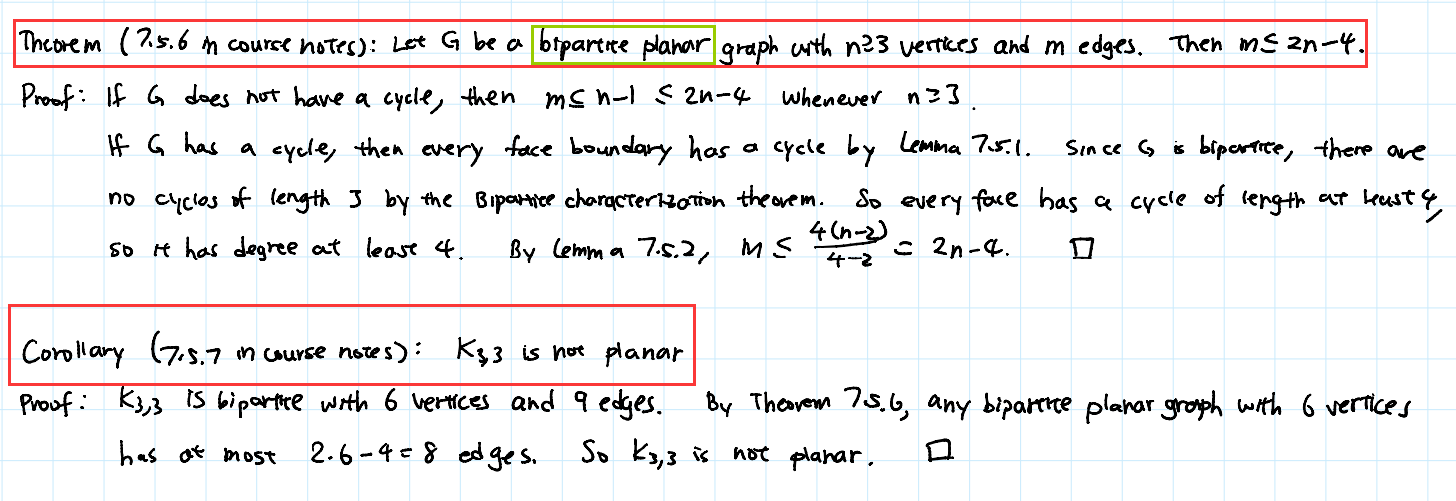 Theorem (7.5.6 in course notes): Let G be a bipartite planar graph with n≥3 vertices and m edges. Then m≤ 2n-4.
Proof: If G does not have a cycle, then m≤ n-1 ≤ 2n-4 whenever n≥3.
If G has a cycle, then every face boundary has a cycle by Lemma 7.5.1. Since G is bipartite, there are
no cycles of length 3 by the Bipartite characterization theorem. So every face has a cycle of length at least 4,
so it has degree at least 4. By Lemma 7.5.2, m ≤ 4(n-2)/4-2 = 2n-4. □
Corollary (7.5.7 in course notes): K3,3 is not planar
Proof: K3,3 is bipartite with 6 vertices and 9 edges. By Theorem 7.5.6, any bipartite planar graph with 6 vertices
has at most 2.6-4=8 edges. So K3,3 is not planar. □